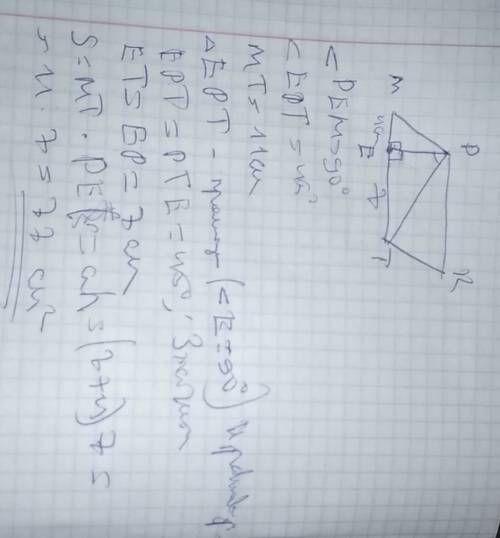 M
P
4см
E
7
T
K
<PEM=90°
<EPT=45°
MT=11см
△EPT - прямоуг (<E=90°) и равнобедр
EPT=PTE=45°, Значит
ET=EP=7см
S=MT·PE = ah=(7+4)·7=
=11·7=77 см²